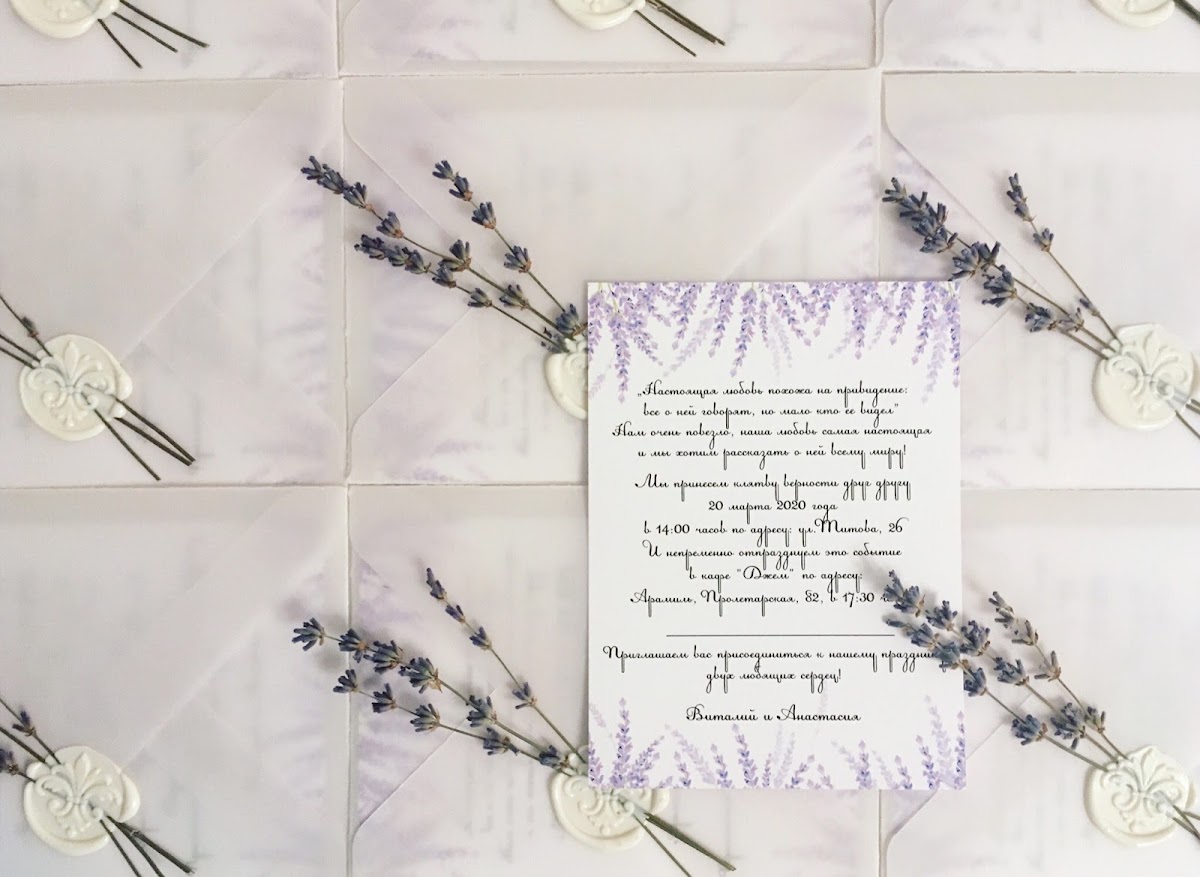 „Настоящая любовь похожа на привидение:
все о ней говорят, но мало кто ее видел"
Нам очень повезло, наша любовь самая настоящая
и мы хотим рассказать о ней всему миру!
Мы принесем клятву верности друг другу
20 марта 2020 года
в 14:00 часов по адресу: ул.Титова, 26
И непременно отпразднуем это событие
в кафе "Джем" по адресу:
Арамиль, Пролетарская, 82, в 17:30
Приглашаем вас присоединиться к нашему
двух любящих сердец!
Виталий и Анастасия